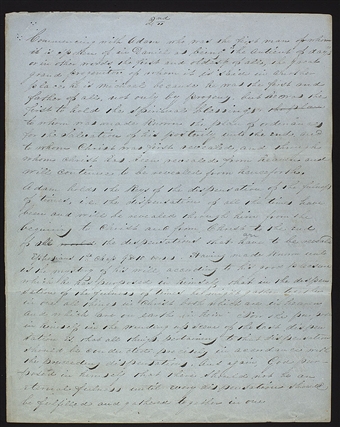 2nd
Commencing with Adam who was the first man of whom
it is spoken of in Daniel as being the Ancient of days
or in other words the first and oldest of all, the great
grand progenitor of whom it is said in another
place he is Michael because he was the first and
father of all, not only by progeny, but he was the
first to hold the spiritual blessings
to whom was made known the plan of ordinances
for the Salvation of his posterity unto the end, and
to whom Christ was first revealed, and through
whom Christ has been revealed from heaven and
will continue to be revealed from henceforth.
Adam holds the Keys of the dispensation of the fulness
of times, i.e. the dispensation of all the times have
been and will be revealed through him from the
beginning to Christ and from Christ to the end
of all the dispensations that are to be revealed
Ephesians 1st Chap 9 & 10 verses. Having made known unto
us the mystery of his will, according to his good pleasure
which he has purposed in himself that in the dispen-
sation of the fulness of times he might gather together
in one all things in Christ both which are in heaven
and which are on earth in him. Now the purpose
in himself in the winding up scene of the last dispen-
sation is, that all things pertaining to that dispensation
should be conducted precisely in accordance with
the preceding dispensations. And again, God pur-
posed in himself that there should not be an
eternal fulness until every dispensation should
be fulfilled and gathered together in one